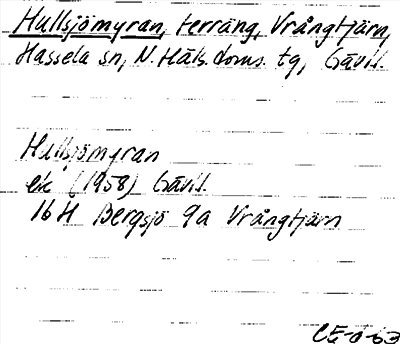 Hullsjömyran, terräng, Vrångtjärn,
Hassela sn, N. Häls. doms. tg, Gävl.
Hullsjömyran
ek (1958) Gävl.
16H Bergsjö 9a Vrångtjärn